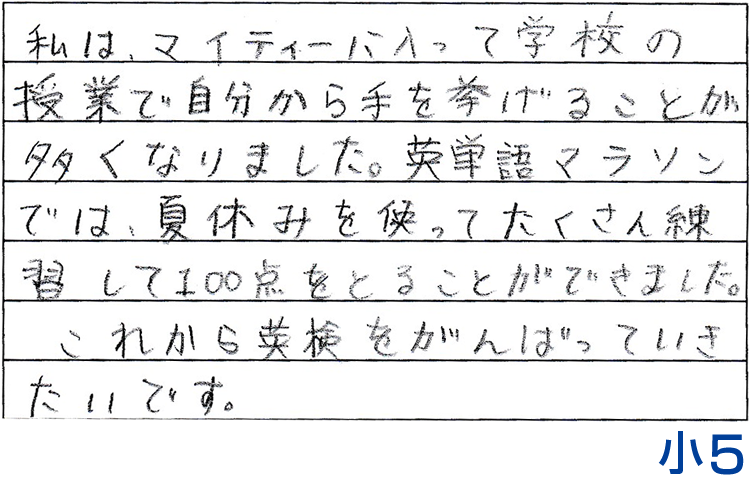 私は、マイティーに入って学校の
授業で自分から手を挙げることが
多くなりました。英単語マラソン
では、夏休みを使ってたくさん練
習して100点をとることができました。
これから英検をがんばっていき
たいです。
小5